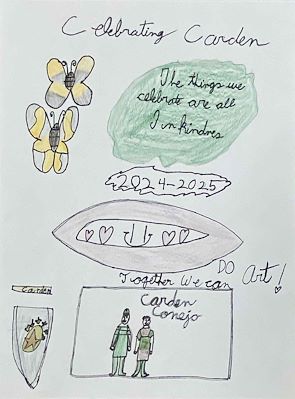 Celebrating Carden
The things we
celebrate are all
In kindres
2024-2025
Together We can DO Art!
Carden
Carden
Conejo